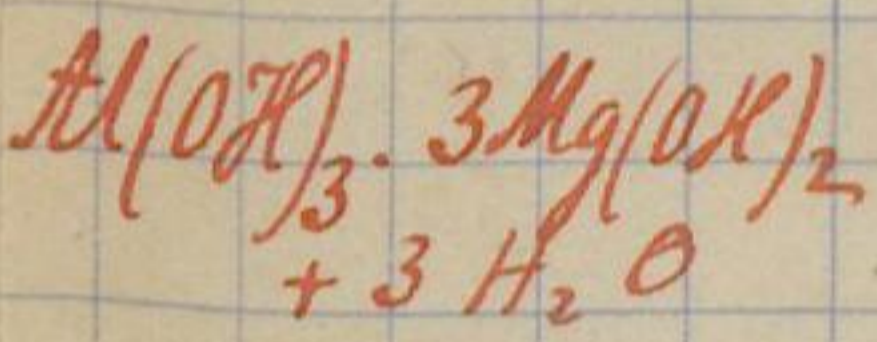 Al(OH)₃. 3Mg(OH)₂
+ 3 H₂O